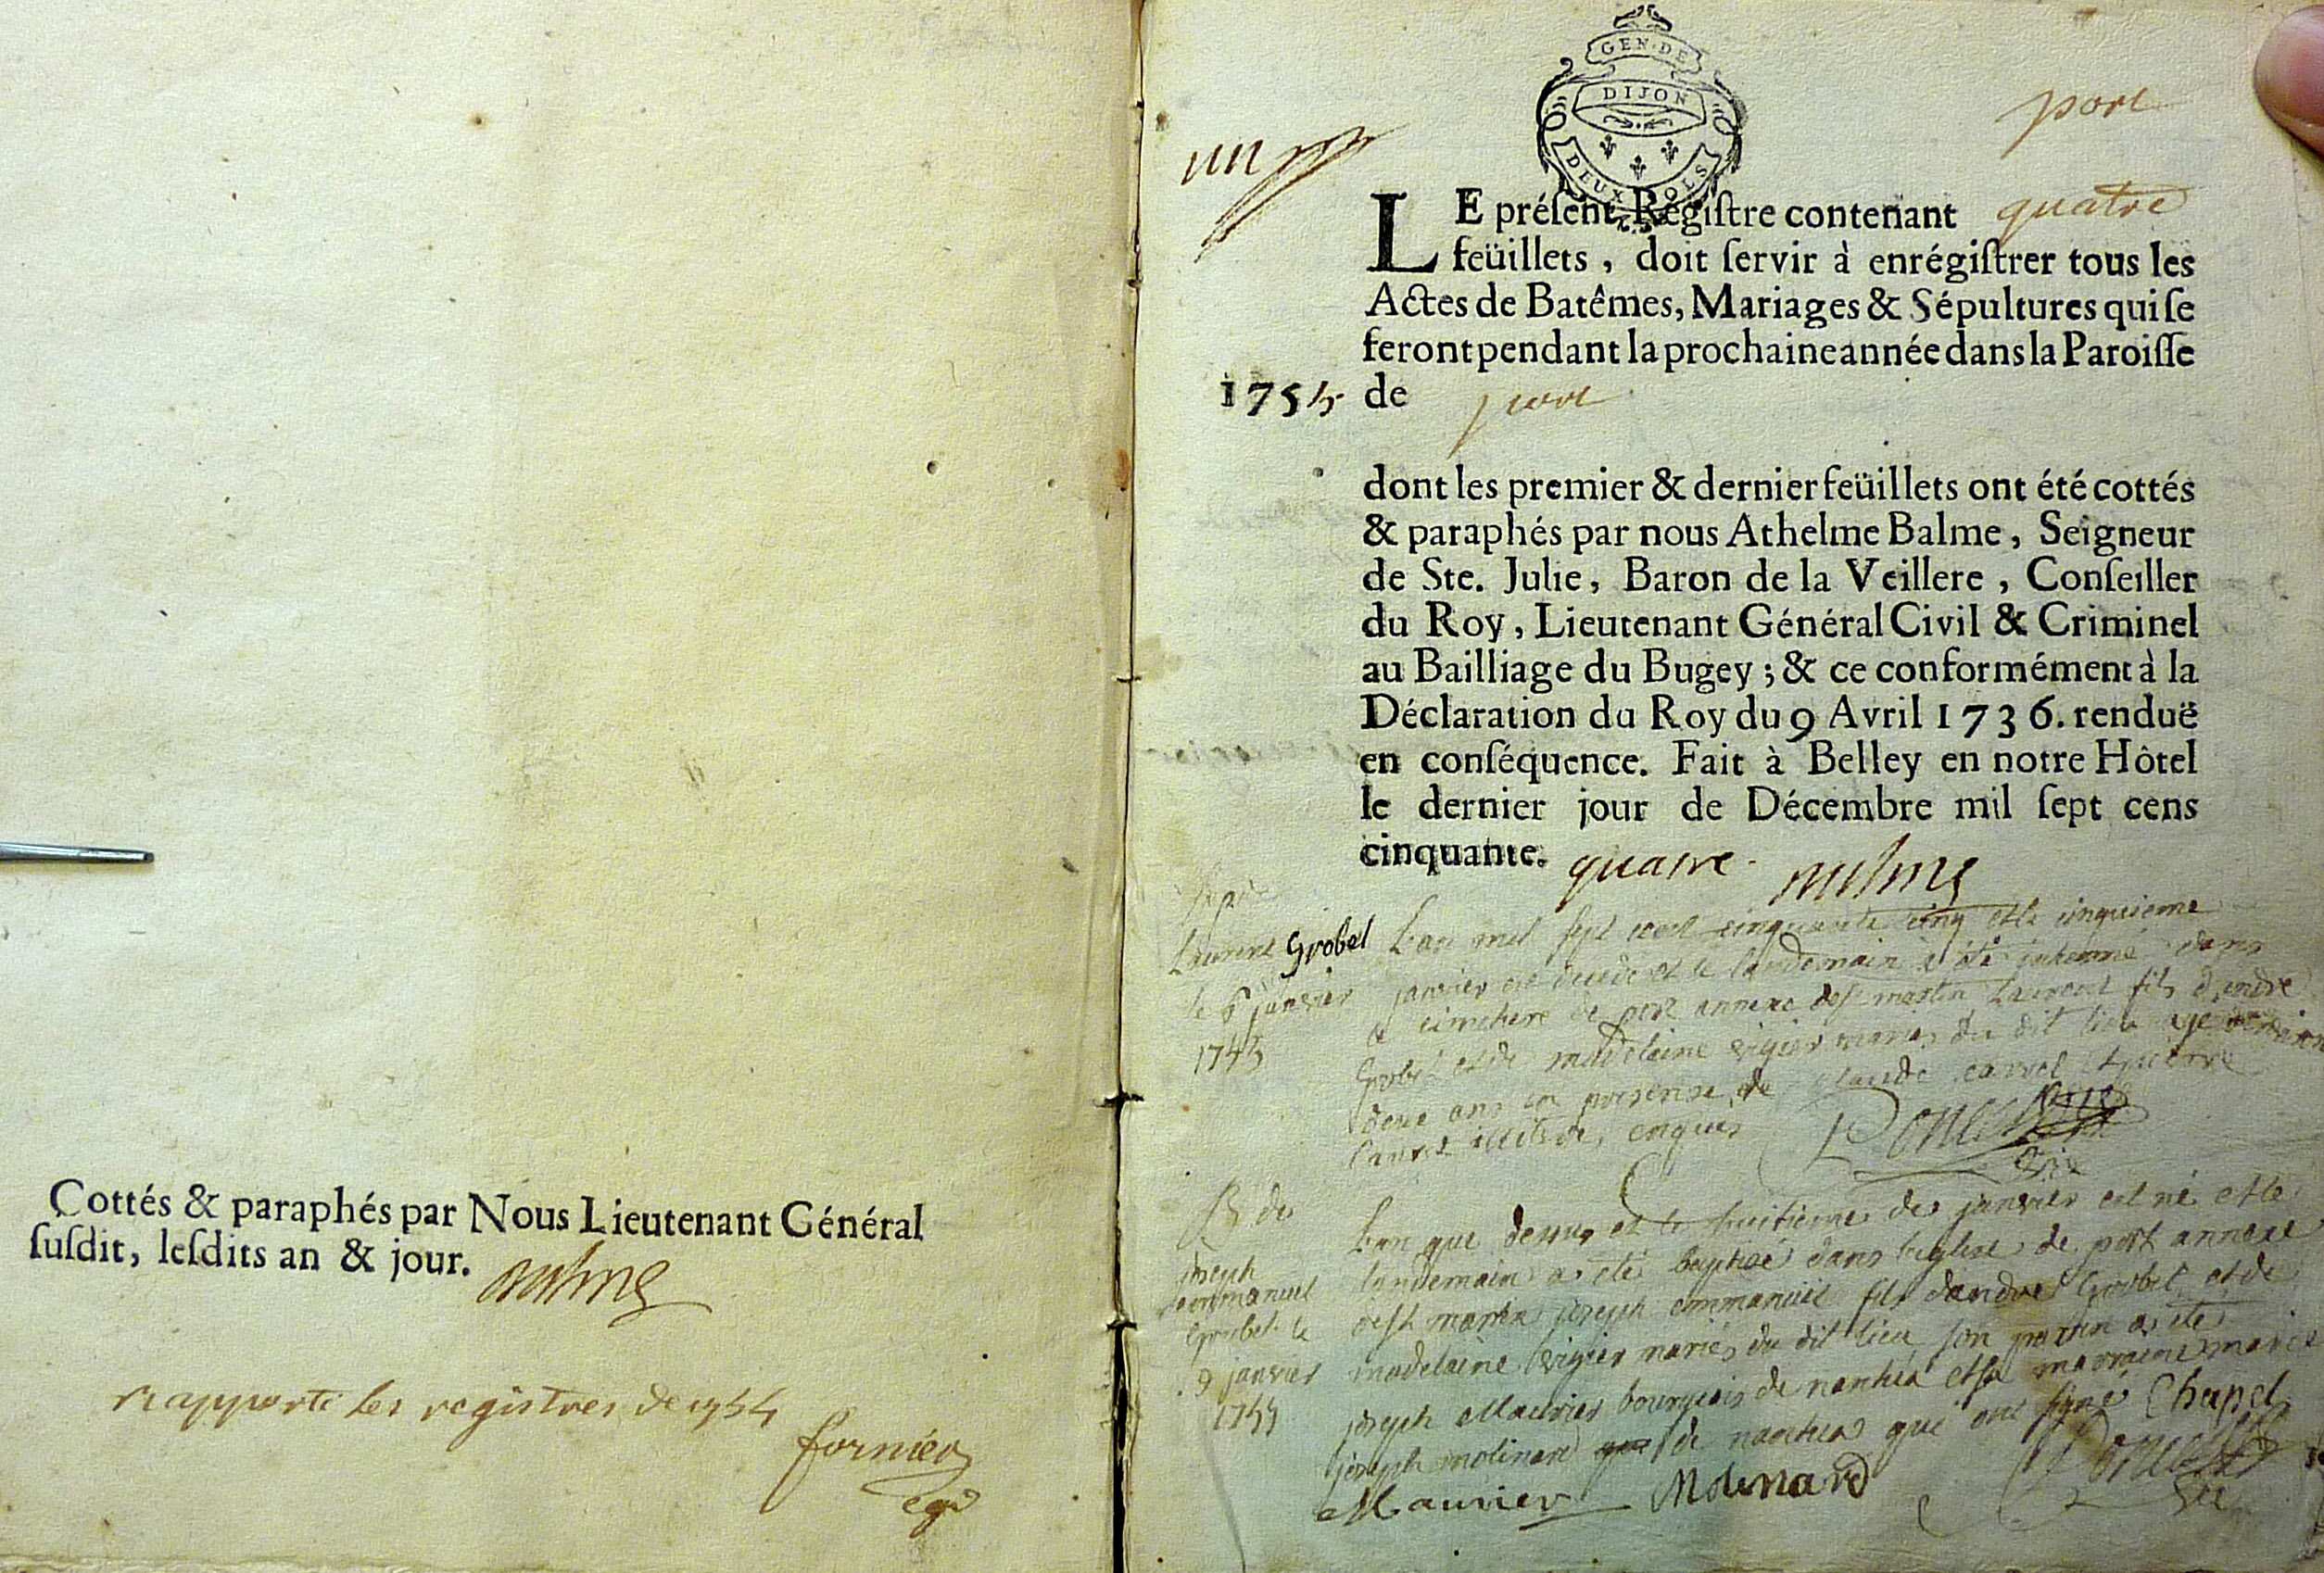 Cottés & paraphés par Nous Lieutenant Général
ſuſdit, leſdits an & jour.
rapporté les registres de 1754
fornier
GEN·DE
DIJON
DEUX SOLS
port
un
LE préſent Régiſtre contenant quatre
feüillets, doit ſervir à enrégiſtrer tous les
Actes de Batêmes, Mariages & Sépultures qui ſe
feront pendant la prochaine année dans la Paroiſſe
1755 de port
dont les premier & dernier feüillets ont été cottés
& paraphés par nous Athelme Balme, Seigneur
de Ste. Julie, Baron de la Veillere, Conſeiller
du Roy, Lieutenant Général Civil & Criminel
au Bailliage du Bugey; & ce conformément à la
Déclaration du Roy du 9 Avril 1736. renduë
en conſéquence. Fait à Belley en notre Hôtel
le dernier jour de Décembre mil ſept cens
cinquante. quatre
Laurent Grobel
le 6 janvier
1755
L'an mil sept cent cinquante cinq et le cinquieme
janvier est decedé et le landemain a été inhumé dans
le cimetiere de port annexe de st martin Laurent fils d'andre
Grobel et de madelaine vigier mariés du dit lieu agé
deux ans en presence de claude carrel et pierre
carrel illiterés enquis
B de
joseph
emmanuel
Grobel le
9 janvier
1755
L'an que dessus et le huitieme de janvier est né et le
landemain a été baptisé dans l'eglise de port annexe
de st martin joseph emmanuel fils d'andre Grobel et de
madelaine vigier mariés du dit lieu son parrin a été
joseph Maurier bourgeois de nantua et sa marraine marie
joseph molinard de nantua qui ont signé Chapel
Maurier Molinard